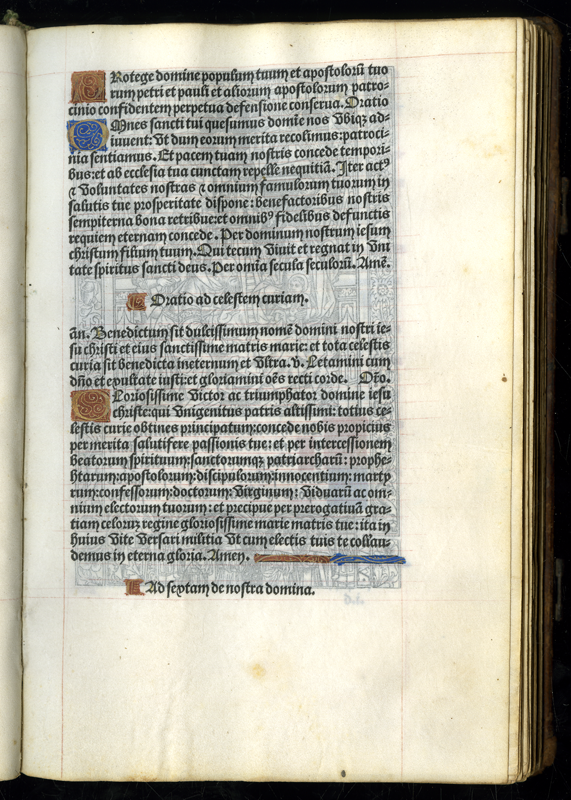 PRotege domine populum tuum et apostolorū tuo
rum petri et pauli et aliorum apostolorum patro-
cinio confidentem perpetua defensione conserua. Oratio
OMnes sancti tui quesumus domīe nos vbiqz ad-
iuuent: vt dum eorum merita recolimus: patroci-
nia sentiamus. Et pacem tuam nostris concede tempori-
bus: et ab ecclesia tua cunctam repelle nequitiā. Iter actꝰ
⁊ voluntates nostras ⁊ omnium famulorum tuorum in
salutis tue prosperitate dispone: benefactoribus nostris
sempiterna bona retribue: et omnibꝰ fidelibus defunctis
requiem eternam concede. Per dominum nostrum iesum
christum filium tuum. Qui tecum viuit et regnat in vni
tate spiritus sancti deus. Per omīa secula seculorū. Amē.
Oratio ad celestem curiam.
añ. Benedictum sit dulcissimum nomē domini nostri ie-
su christi et eius sanctissime matris marie: et tota celestis
curia sit benedicta ineternum et vltra. v. Letamini cum
dño et exultate iusti: et gloriamini oēs recti corde. Oro.
GLoriosissime victor ac triumphator domine iesu
christe: qui vnigenitus patris altissimi: totius ce-
lestis curie obtines principatum: concede nobis propicius
per merita salutifere passionis tue: et per intercessionem
beatorum spirituum: sanctorumqz patriarcharū: prophe-
htarum: apostolorum: discipulorum: innocentium: marty
rum: confessorum: doctorum: virginum: viduarū ac om-
nium electorum tuorum: et precipue per prerogatiuā gra-
tiam celorum regine gloriosissime marie matris tue: ita in
huius vite versari militia vt cum electis tuis te collau-
demus in eterna gloria. Amen.
Ad sextam de nostra domina.